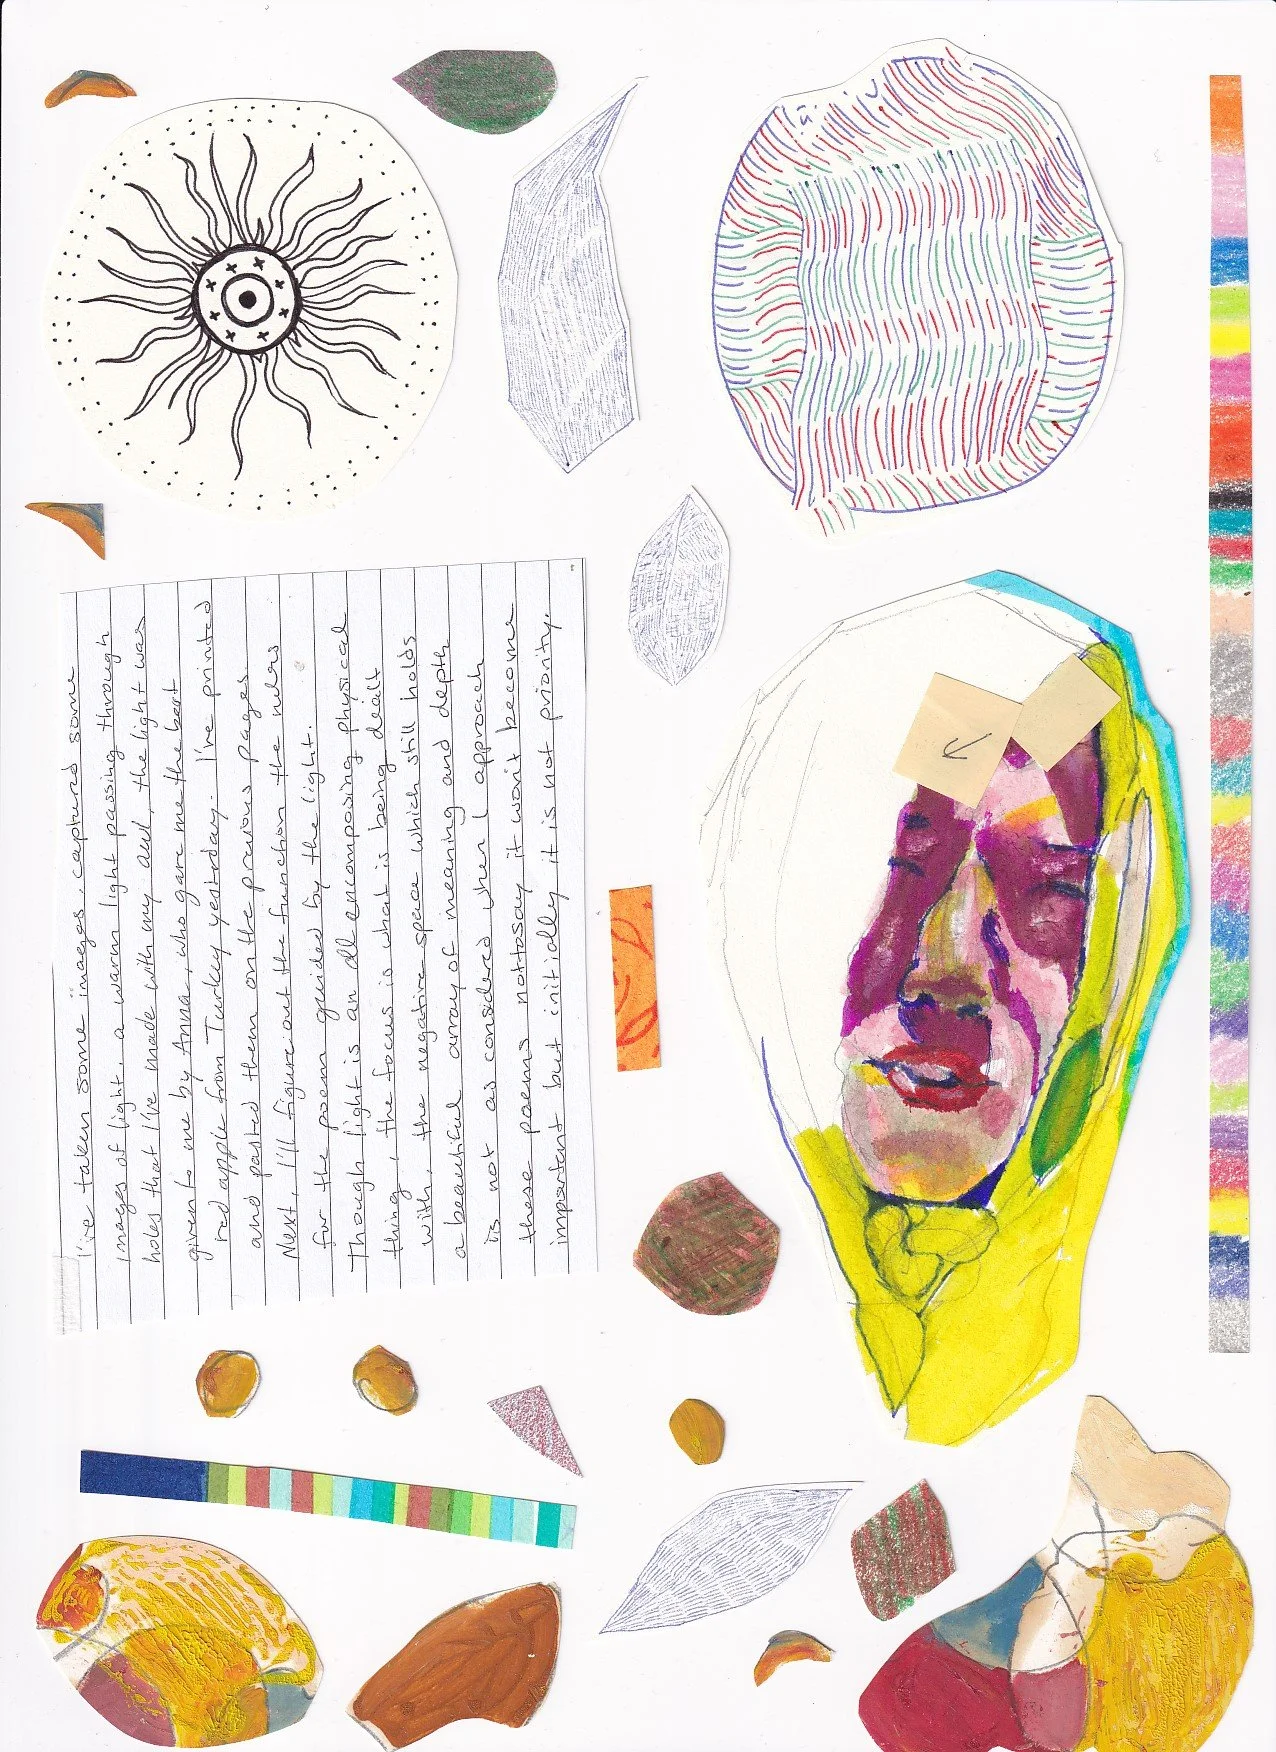 I've taken some images, captured some
images of light. a warm light passing through
holes that I've made with my and the light was
given to me by Anna, who gave me the best
red apple from Turkey yesterday. I've printed
and pasted them on the previous pages.
Next, I'll figure out the function the rules
for the poem guided by the light.
Though light is an all encompasing physical
thing, the focus is what is being dealt
with, the negative space which still holds
a beautiful array of meaning and depth
is not as considered when I approach
these poems nottosay it won't become
important but initially it is not priority.